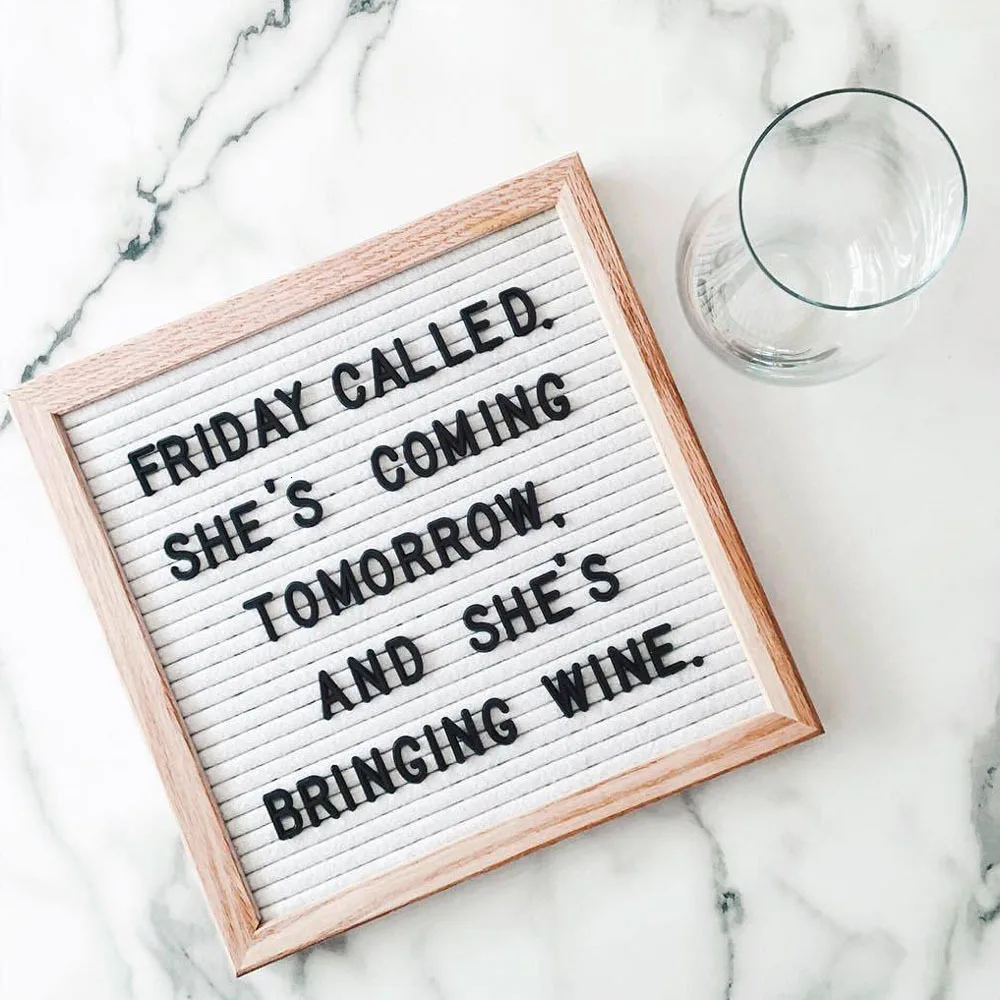 FRIDAY CALLED.
SHE'S COMING
TOMORROW,
AND SHE'S
BRINGING WINE.